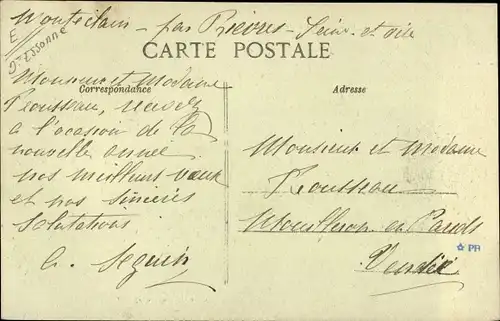 Monteclain - par Bièvres - Seine et Oise
E
Dt ESSonne
CARTE POSTALE
Correspondance
Adresse
Monsieur et Madame
Rousseau, recevez
a l'occasion de la
nouvelle année
nos meilleurs vœux
et nos sincères
salutations.
Seguin
Monsieur et Madame
Rousseau
Mouilleron en Pareds
Vendée
☆ PR